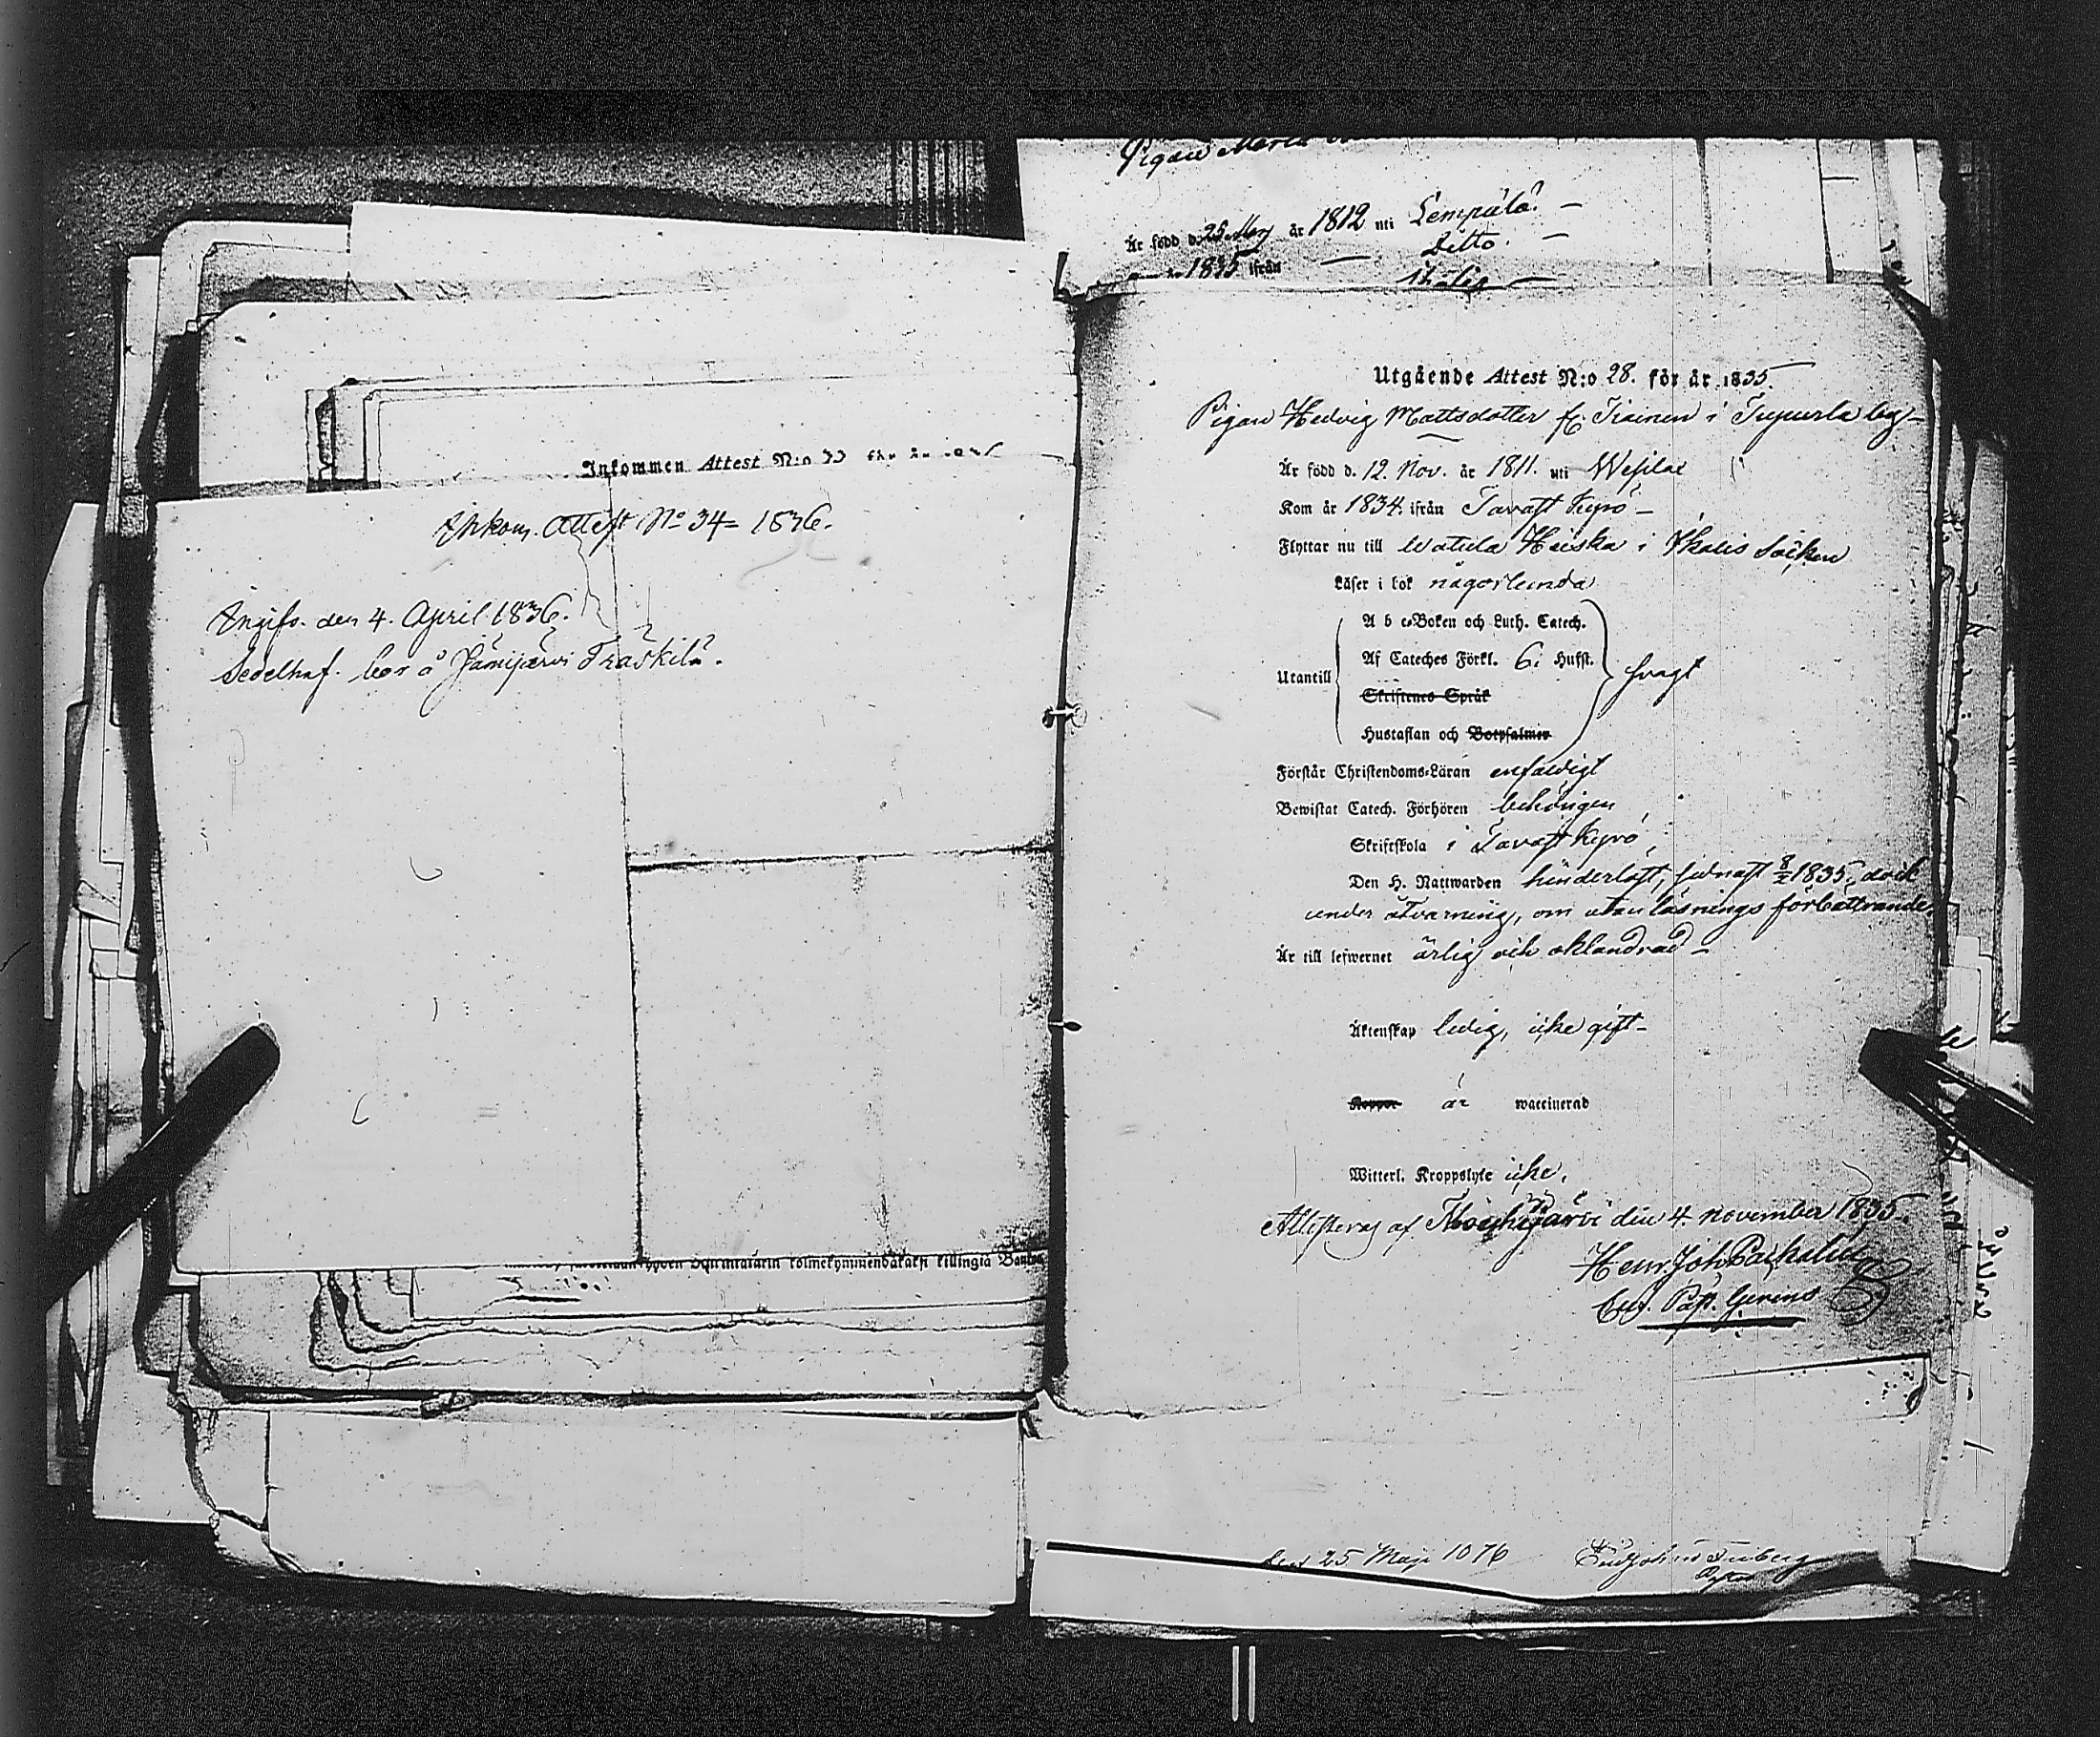 Inkommen Attest N:o 33 för år
Inkom. Attest No 34 = 1836.
Angifs. den 4. April 1836.
Sedelhaf. bor å Jämijärvi Träskilä.
kolmekymmendäkaksi killingiä Banko
Pigan Maria
Är född d. 25 Maij år 1812 uti Lempälä. —
Ditto. —
1835 ifrån —
Utgående Attest N:o 28. för år 1835.
Pigan Hedvig Mattsdotter fr. Tiainen i Tupurla by —
Är född d. 12. Nov. år 1811. uti Wesilax
Kom år 1834. ifrån Tavast Kyro —
Flyttar nu till Watula Heiska i Ikalis Socken
Läser i bok någorlunda
A b c-Boken och Luth. Catech.
Af Cateches Förkl. 6. Hufst.
Utantill svagt
Skriftenes Språk
Hustaflan och Botpsalmer
Förstår Christendoms-Läran enfaldigt
Bewistat Catech. Förhören behörigen
Skriftskola i Tavast Kyro,
Den H. Nattwarden hinderlöst, sednast 8/2 1835. dock
under åtvarning, om utanläsnings förbättrande.
Är till lefwernet ärlig och oklandrad —
Äktenskap ledig, icke gift —
Koppor är waccinerad
Witterl. Kroppslyte icke.
Attesteras af den 4. november 1835.
Henr. Joh.
Past.
den 25 Maji 1836